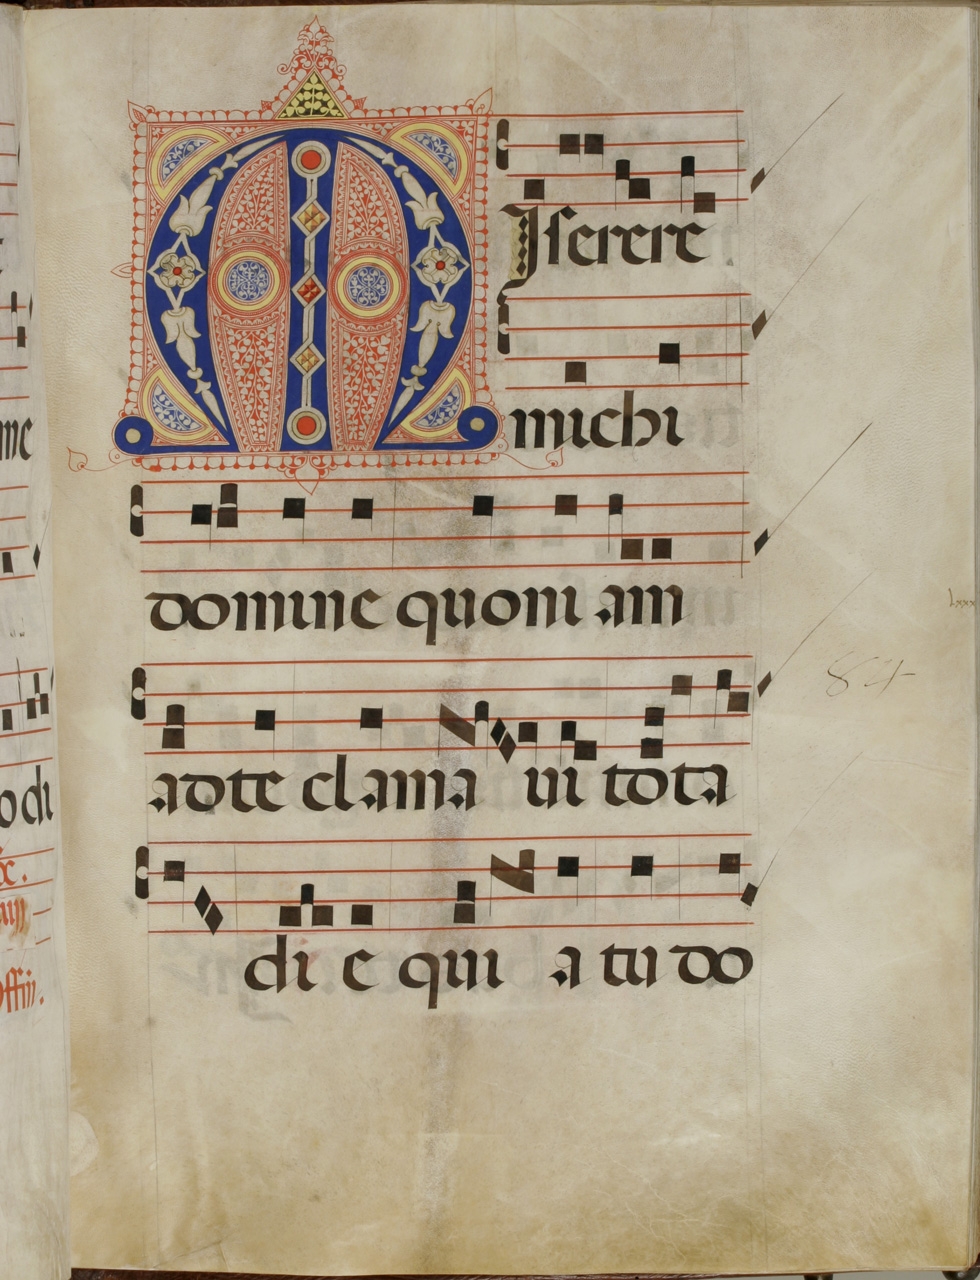 MIserere
michi
domine quoni am
adte clama ui tota
di e qui a tu do
84
lxxx
me
odi
ffiij.